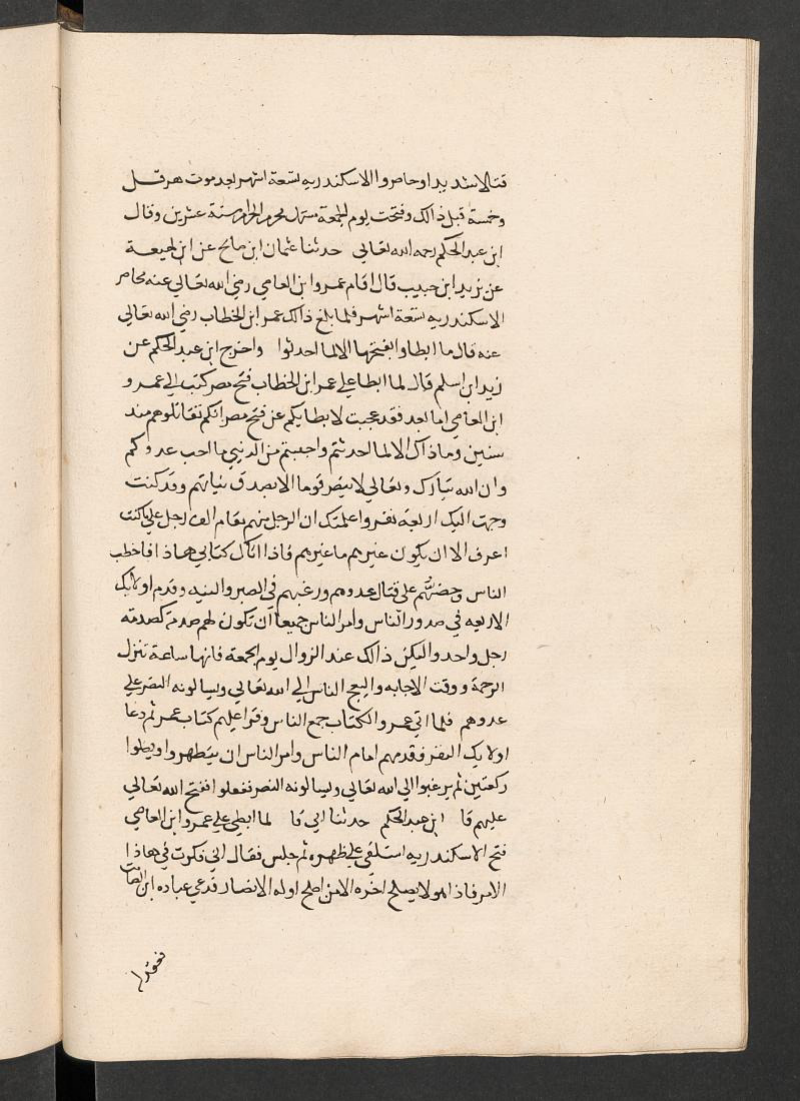 قتالا شديدا وحاصروا الاسكندريه تسعة اشهر بعد موت هرقل
وخمسة قبل ذالك وفتحت يوم الجمعة مستهل محرم الحرام سنة عشرين وقال
ابن عبد الحكم رحمه الله تعالي حدثنا عثمان ابن صالح عن ابن لهيعة
عن يزيد ابن حبيب قال اقام عمروا ابن العاصي رضي الله تعالي عنه محاصر
الاسكندريه ستعة اشهر فلما بلغ ذالك عمر ابن الخطاب رضي الله تعالي
عنه قال ما ابطاوا بفتحها الا لما احدثوا واخرج ابن عبد الحكم عن
زيد ابن اسلم قال لما ابطا علي عمر ابن الخطاب فتح مصر كتب الي عمرو
ابن العاصي اما بعد فقد عجبت لابطايكم عن فتح مصر انكم تقاتلوهم مند
سنين وما ذاك الا لما احدثتم واحببتم من الدنيي ما احب عدوكم
وان الله تبارك وتعالي لا ينصر قوما الا بصدق نياتهم وقد كنت
وجهت اليك اربعة نفر واعلمتك ان الرجل منهم بمقام الف رجل علي ما كنت
اعرف الا ان يكون غيرهم ما غيرهم فاذا اتاك كتابي هاذا فاخطب
الناس وحضهم علي قتال عدوهم ورغبهم في الصبر والنيه وقدم اولايك
الاربعه في صدور الناس وامر الناس جميعا ان تكون لهم صدمة كصدمة
رجل واحد وليكن ذالك عند الزوال يوم الجمعة فانها ساعة تنزل
الرحمة ووقت الاجابه وليعج الناس الي الله تعالي ويسالونه النصر علي
عدوهم فلما اتي عمروا الكتاب جمع الناس وقرا عليهم كتاب عمر ثم دعا
اولايك النفر فقدمهم امام الناس وامر الناس ان يتطهروا ويصلوا
ركعتين ثم يرغبوا الي الله تعالي ويسالونه النصر ففعلوا ففتح الله تعالي
عليهم قا ابن عبد الحكم حدثنا ابي قا لما ابطي علي عمروا ابن العاصي
فتح الاسكندريه استلقي علي ظهره ثم جلس فقال اني فكرت في هاذا
الامر فاذا هو لا يصلح اخره الا من اصلح اوله الانصار فدعي عباده ابن الصامت
فعقد له